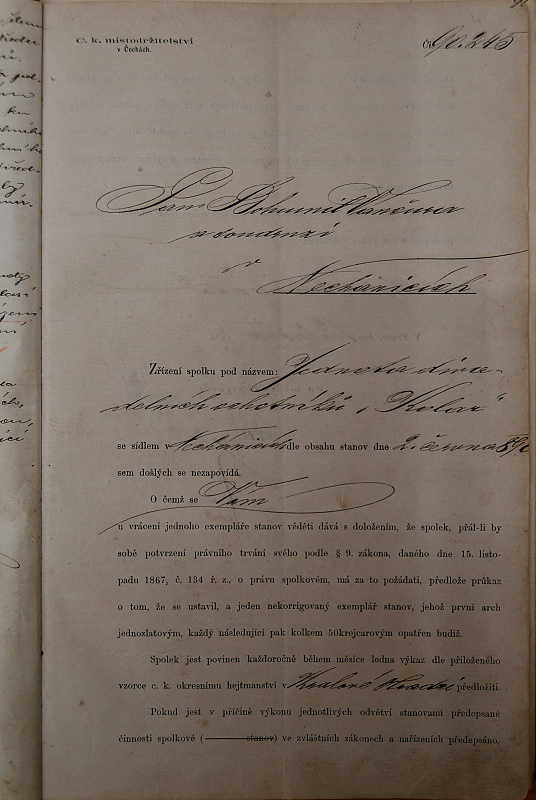 C. k. místodržitelství
v Čechách.
Č. 90.245
Pan Bohumil Vančura
a
v
Nechanicích
Zřízení spolku pod názvem: Jednota diva-
delních ochotníků „Kolar"
se sídlem v Nechanicích dle obsahu stanov dne 2. června 89
sem došlých se nezapovídá.
O čemž se Vám
u vrácení jednoho exempláře stanov věděti dává s doložením, že spolek, přál-li by
sobě potvrzení právního trvání svého podle § 9. zákona, daného dne 15. listo-
padu 1867, č. 134 ř. z., o právu spolkovém, má za to požádati, předlože průkaz
o tom, že se ustavil, a jeden nekorrigovaný exemplář stanov, jehož první arch
jednozlatovým, každý následující pak kolkem 50krejcarovým opatřen budiž.
Spolek jest povinen každoročně během měsíce ledna výkaz dle přiloženého
vzorce c. k. okresnímu hejtmanství v Králové Hradci předložiti.
Pokud jest v příčině výkonu jednotlivých odvětví stanovami předepsané
činnosti spolkové ( stanov) ve zvláštních zákonech a nařízeních předepsáno,